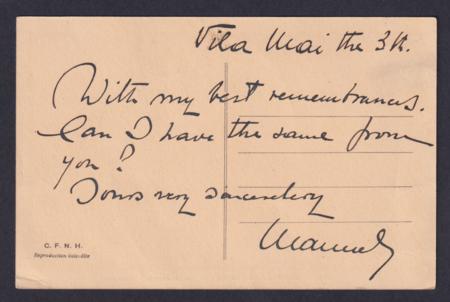 Vila Mai the 3d.
With my best remembrances.
Can I have the same from
you?
Yours very sincerely
Manuel
C. F. N. H.
Reproduction interdite